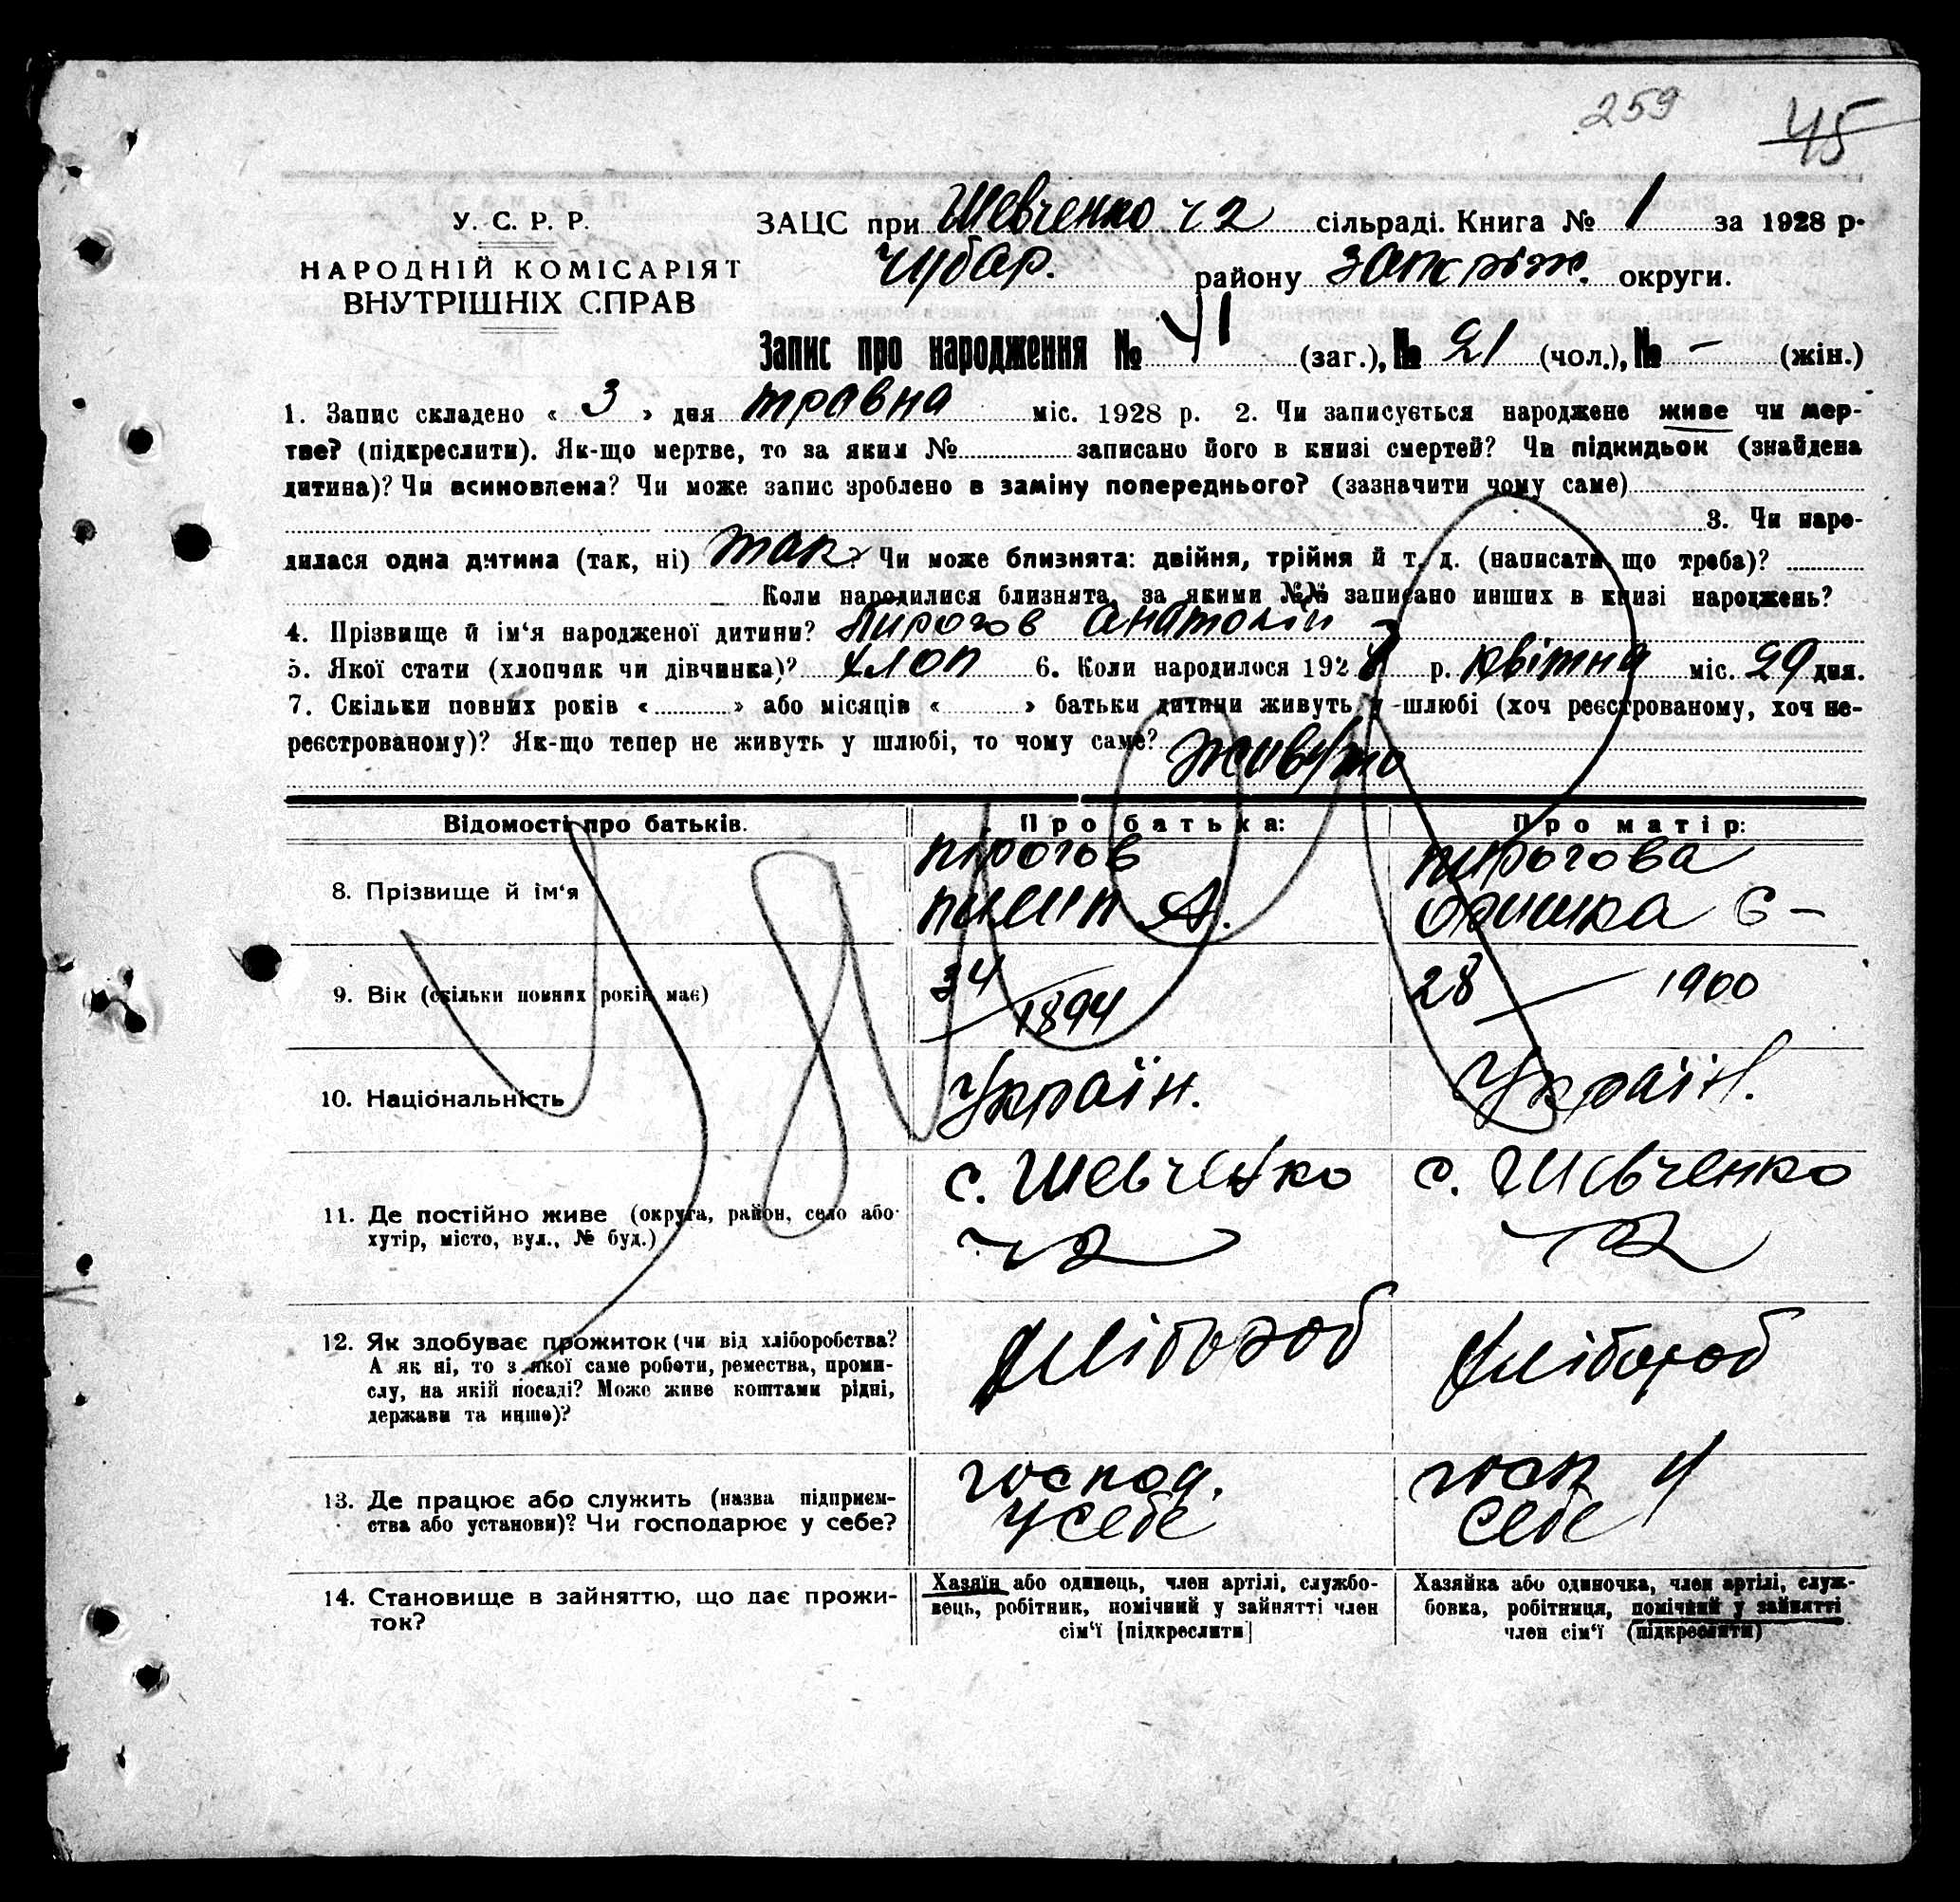 259
45
У. С. Р. Р.
НАРОДНІЙ КОМІСАРІЯТ
ВНУТРІШНІХ СПРАВ
ЗАЦС при Шевченко ч 2 сільраді. Книга № 1 за 1928 р.
Чубар. району Запоріж. округи.
Запис про народження № 41 (заг.), № 21 (чол.), № – (жін.)
1. Запис складено « 3 » дня травна міс. 1928 р. 2. Чи записується народжене живе чи мер-
тве? (підкреслити). Як-що мертве, то за яким № записано його в книзі смертей? Чи підкидьок (знайдена
дитина)? Чи всиновлена? Чи може запис зроблено в заміну попереднього? (зазначити чому саме)
3. Чи наро-
дилася одна дитина (так, ні) так? Чи може близнята: двійня, трійня й т. д. (написати що треба)?
Коли народилися близнята, за якими №№ записано инших в книзі народжень?
4. Прізвище й ім‘я народженої дитини? Пирогов Анатолій
5. Якої стати (хлопчяк чи дівчинка)? хлоп 6. Коли народилося 1928 р. квітна міс. 29 дня.
7. Скільки повних років « » або місяців « » батьки дитини живуть у шлюбі (хоч реєстрованому, хоч не-
реєстрованому)? Як-що тепер не живуть у шлюбі, то чому саме?
живуть
Відомості про батьків. Про батька: Про матір:
8. Прізвище й ім‘я
Пірогов
Пилип А.
Пирогова
Оришка Є –
9. Вік (скільки повних років має)
34
1894
28 1900
10. Національність
Україн.
Україн.
11. Де постійно живе (округа, район, село або
хутір, місто, вул., № буд.)
с. Шевченко
ч 2
с. Шевченко
ч 2
12. Як здобуває прожиток (чи від хліборобства?
А як ні, то з якої саме роботи, ремества, проми-
слу, на якій посаді? Може живе коштами рідні,
держави та инше)?
хлібороб
хлібороб
13. Де працює або служить (назва підприєм-
ства або установи)? Чи господарює у себе?
господ.
у себе
госп у
себе
14. Становище в зайняттю, що дає прожи-
ток?
Хазяїн або одинець, член артілі, службо-
вець, робітник, помічний у зайнятті член
сім‘ї [підкреслити]
Хазяйка або одиночка, член артілі, служ-
бовка, робітниця, помічний у зайнятті
член сім‘ї (підкреслити)